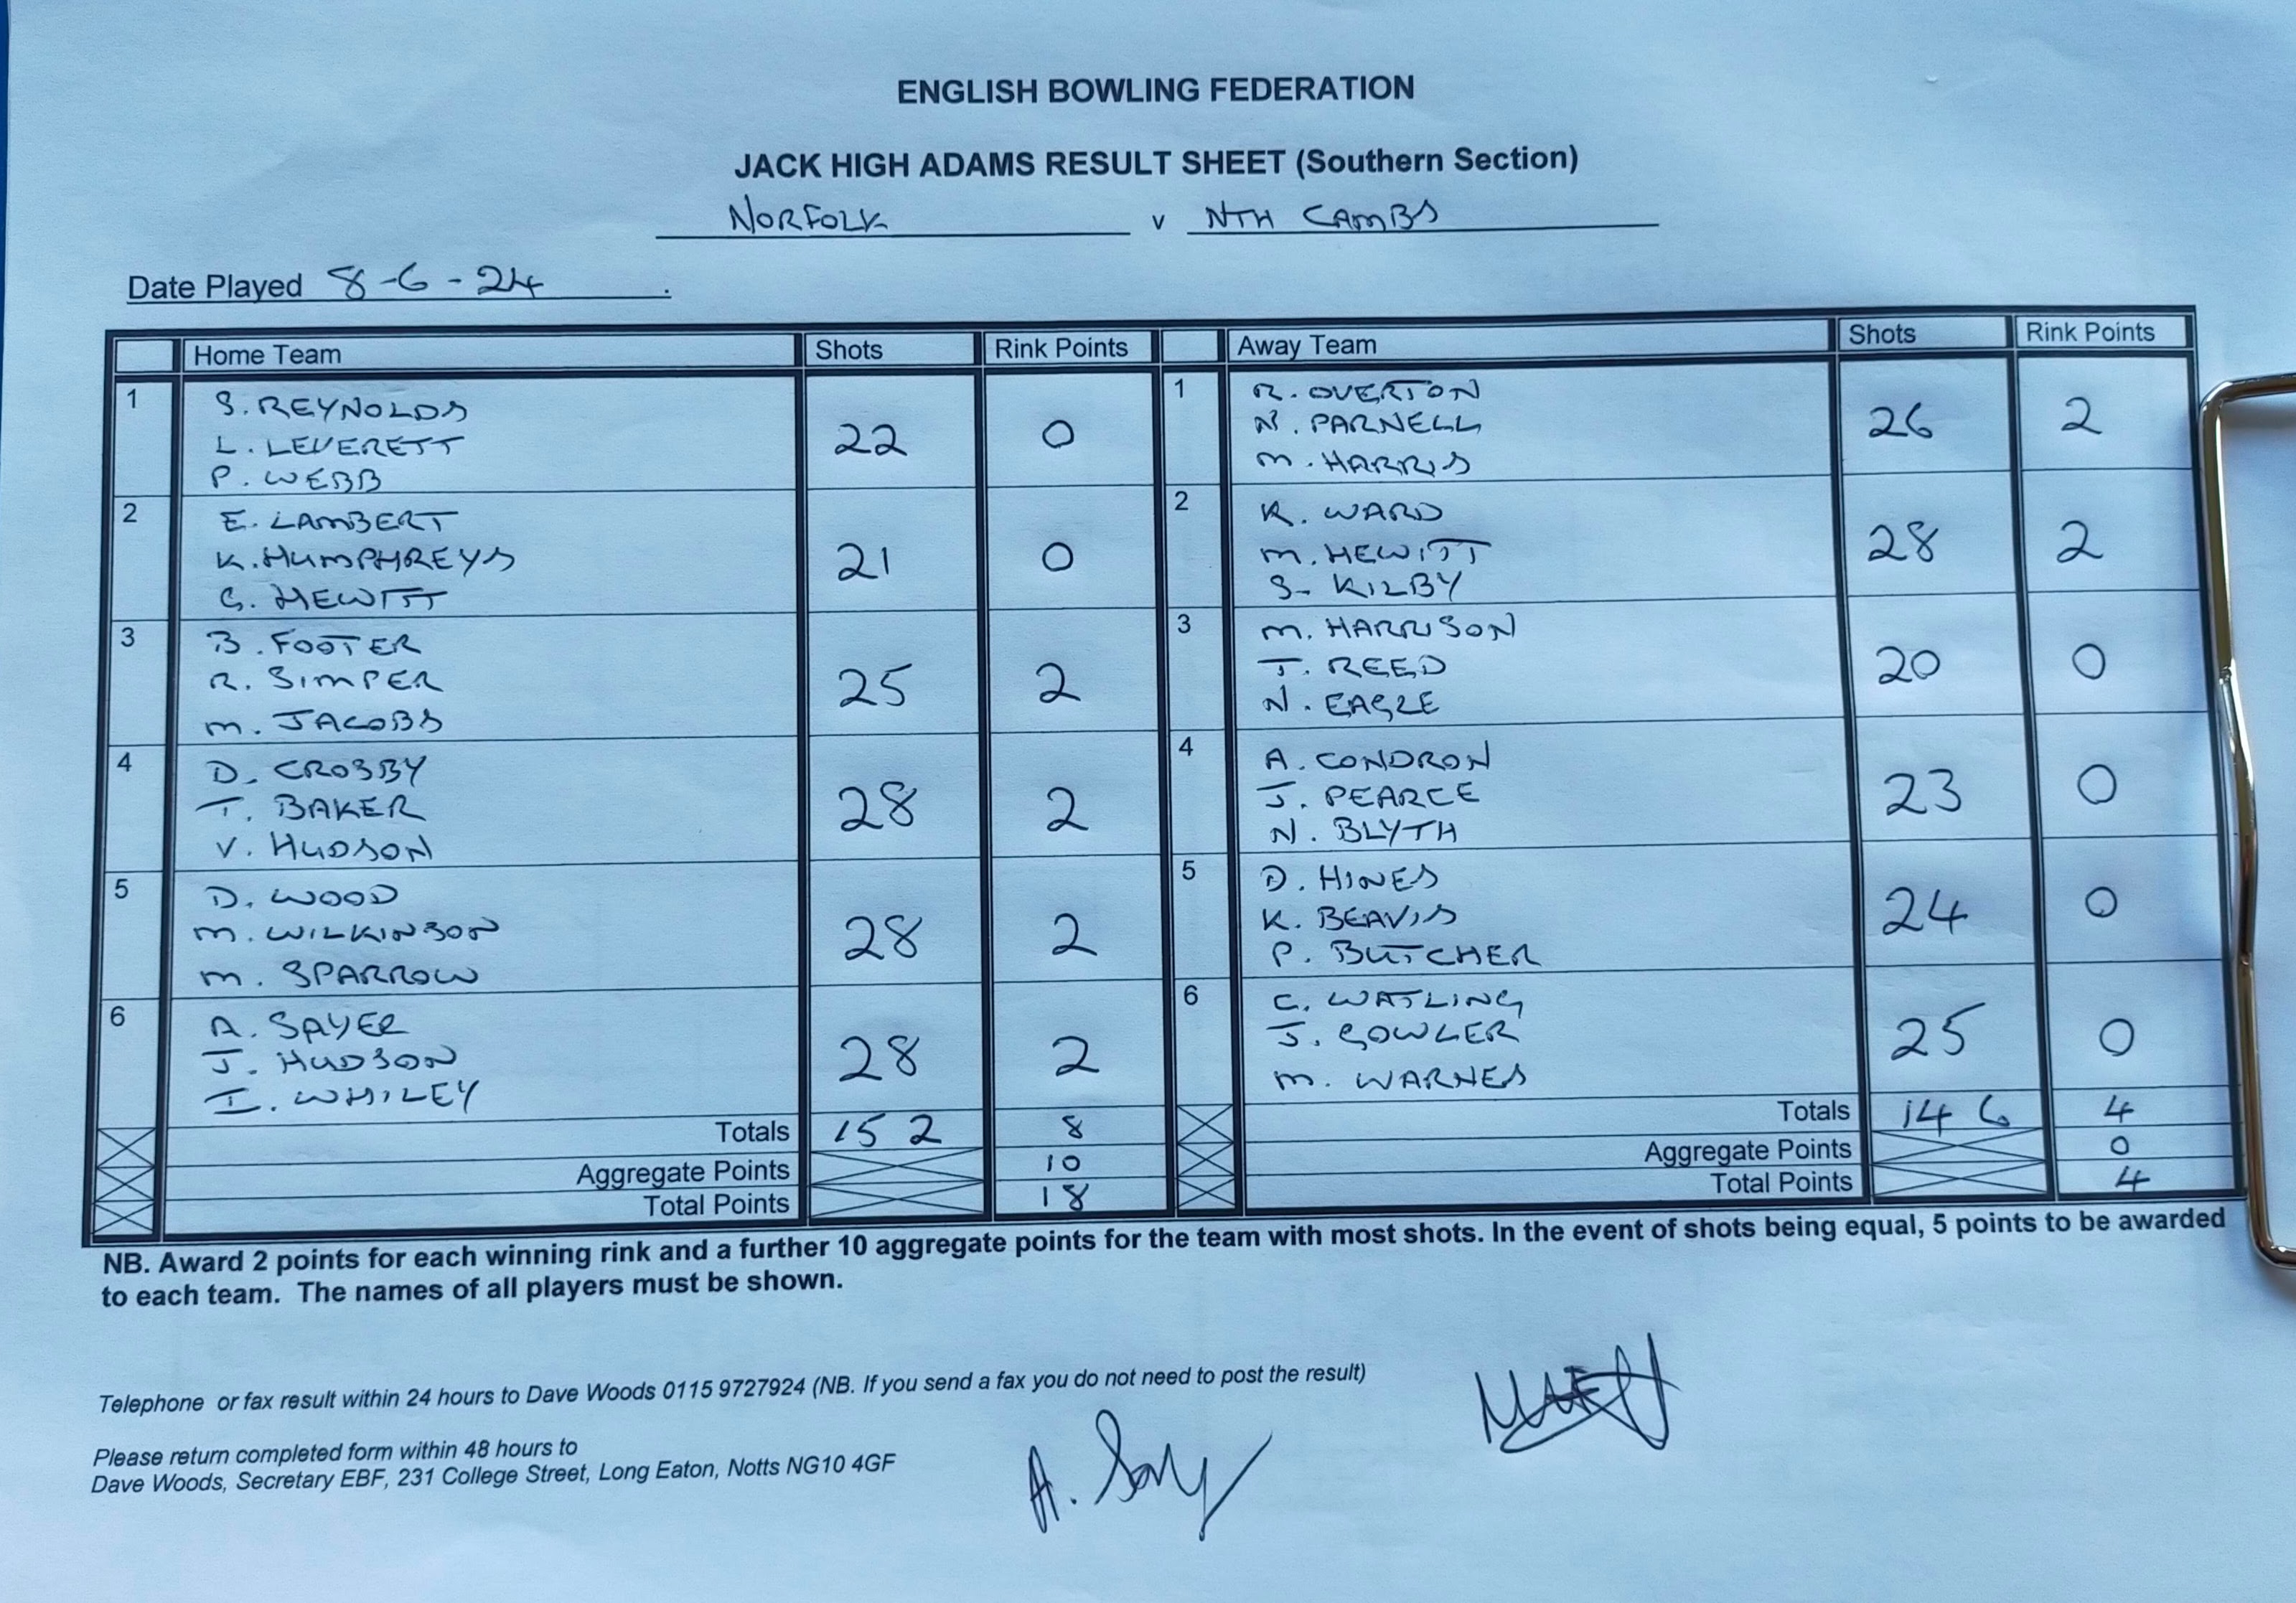 ENGLISH BOWLING FEDERATION
JACK HIGH ADAMS RESULT SHEET (Southern Section)
NORFOLK v NTH CAMBS
Date Played 8-6-24
Home Team Shots Rink Points Away Team Shots Rink Points
1 S. REYNOLDS
L. LEVERETT
P. WEBB
22 0
1 R. OVERTON
N. PARNELL
M. HARRIS
26 2
2 E. LAMBERT
K. HUMPHREYS
G. HEWITT
21 0
2 K. WARD
M. HEWITT
S. KILBY
28 2
3 B. FOOTER
R. SIMPER
M. JACOBS
25 2
3 M. HARRISON
T. REED
N. EAGLE
20 0
4 D. CROSBY
T. BAKER
V. HUDSON
28 2
4 A. CONDRON
J. PEARCE
N. BLYTH
23 0
5 D. WOOD
M. WILKINSON
M. SPARROW
28 2
5 D. HINES
K. BEAVIS
P. BUTCHER
24 0
6 A. SAYER
J. HUDSON
I. WHILEY
28 2
6 C. WATLING
J. GOWLER
M. WARNES
25 0
Totals 152 8 Totals 146 4
Aggregate Points 10 Aggregate Points 0
Total Points 18 Total Points 4
NB. Award 2 points for each winning rink and a further 10 aggregate points for the team with most shots. In the event of shots being equal, 5 points to be awarded
to each team. The names of all players must be shown.
Telephone or fax result within 24 hours to Dave Woods 0115 9727924 (NB. If you send a fax you do not need to post the result)
Please return completed form within 48 hours to
Dave Woods, Secretary EBF, 231 College Street, Long Eaton, Notts NG10 4GF
A.